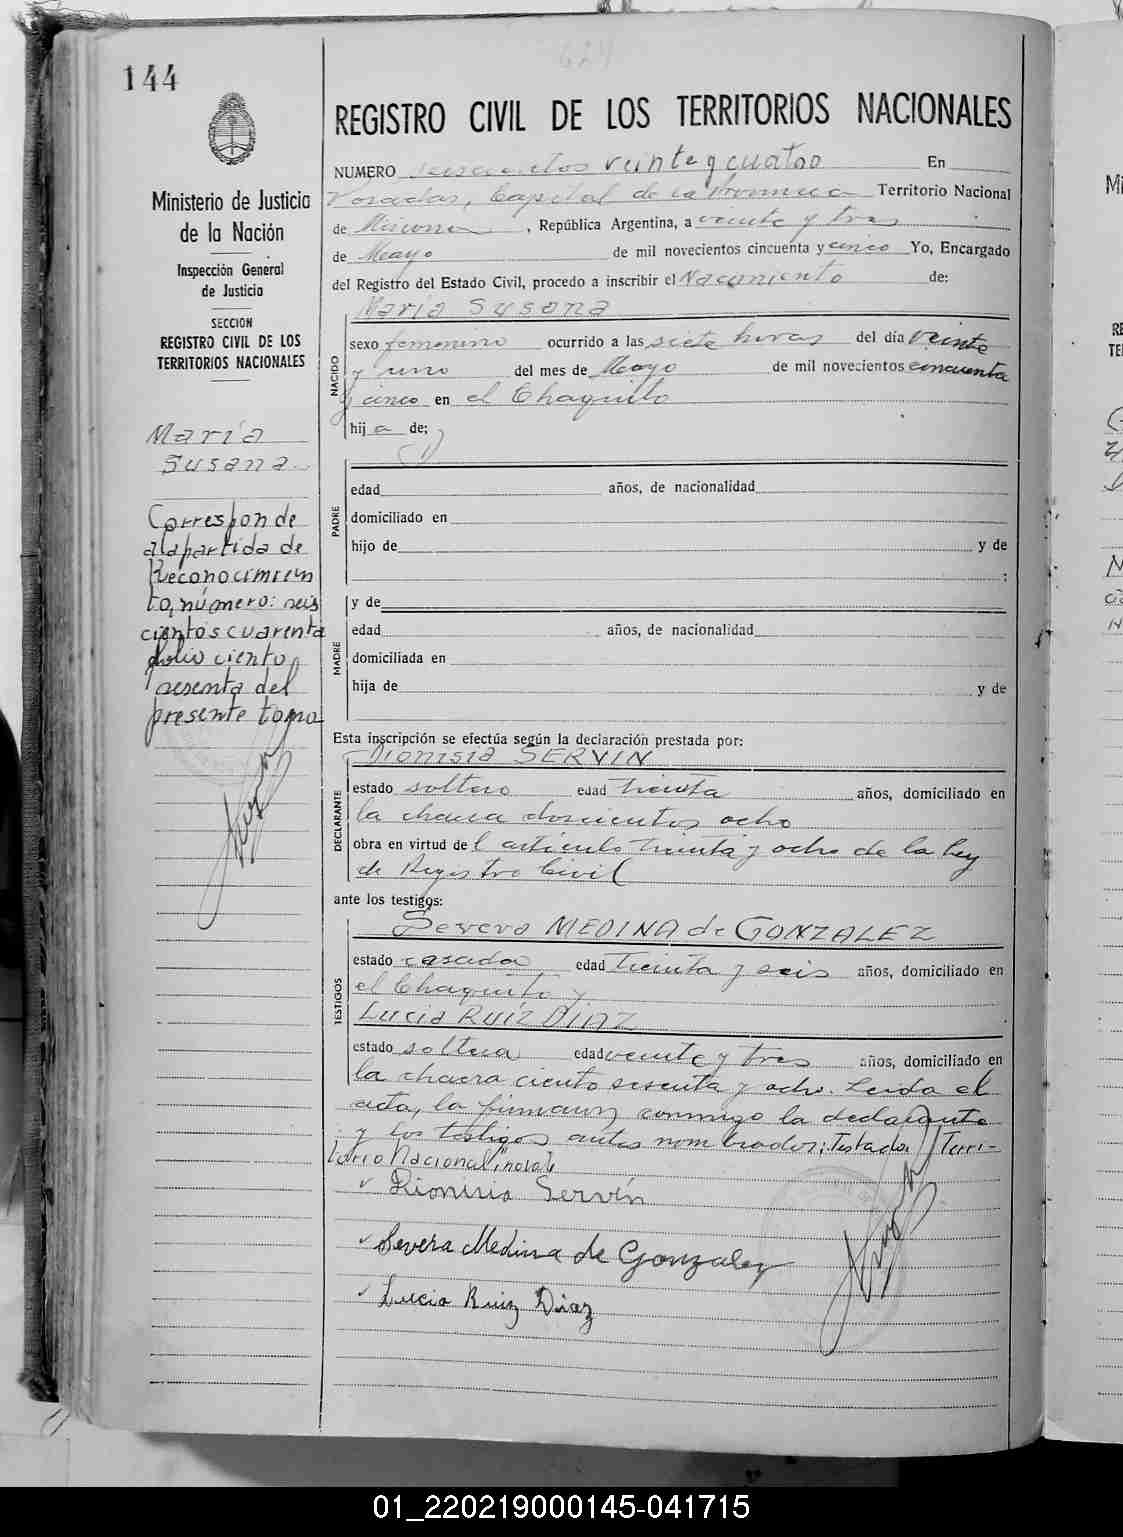 624
144
REGISTRO CIVIL DE LOS TERRITORIOS NACIONALES
NUMERO seiscientos veinte y cuatro En
Posadas, Capital de la Provincia Territorio Nacional
de Misiones, República Argentina, a veinte y tres
de Mayo de mil novecientos cincuenta y cinco Yo, Encargado
del Registro del Estado Civil, procedo a inscribir el Nacimiento de:
María Susana
NACIDO
sexo femenino ocurrido a las siete horas del día veinte
y uno del mes de Mayo de mil novecientos cincuenta
y cinco en el Chaquito
hij a de:
PADRE
edad años, de nacionalidad
domiciliado en
hijo de y de
:
MADRE
y de
edad años, de nacionalidad
domiciliada en
hija de y de
Esta inscripción se efectúa según la declaración prestada por:
Dionisia SERVIN
DECLARANTE
estado soltera edad treinta años, domiciliado en
la chacra doscientos ocho
obra en virtud del artículo treinta y ocho de la ley
de Registro Civil
ante los testigos:
Severa MEDINA de GONZALEZ
TESTIGOS
estado casada edad treinta y seis años, domiciliado en
el Chaquito y
Lucia RUIZ DIAZ
estado soltera edad veinte y tres años, domiciliado en
la chacra ciento sesenta y ocho. Leida el
acta, la firman conmigo la declarante
y los testigos antes nombrados; Testado: Terri-
torio Nacional, no vale
Dionisia Servín
Severa Medina de Gonzalez
Lucia Ruiz Diaz
Ministerio de Justicia
de la Nación
Inspección General
de Justicia
SECCION
REGISTRO CIVIL DE LOS
TERRITORIOS NACIONALES
María
Susana
Corresponde
a la partida de
Reconocimien
to, número: seis
cientos cuarenta
folio ciento
sesenta del
presente tomo
01_220219000145-041715